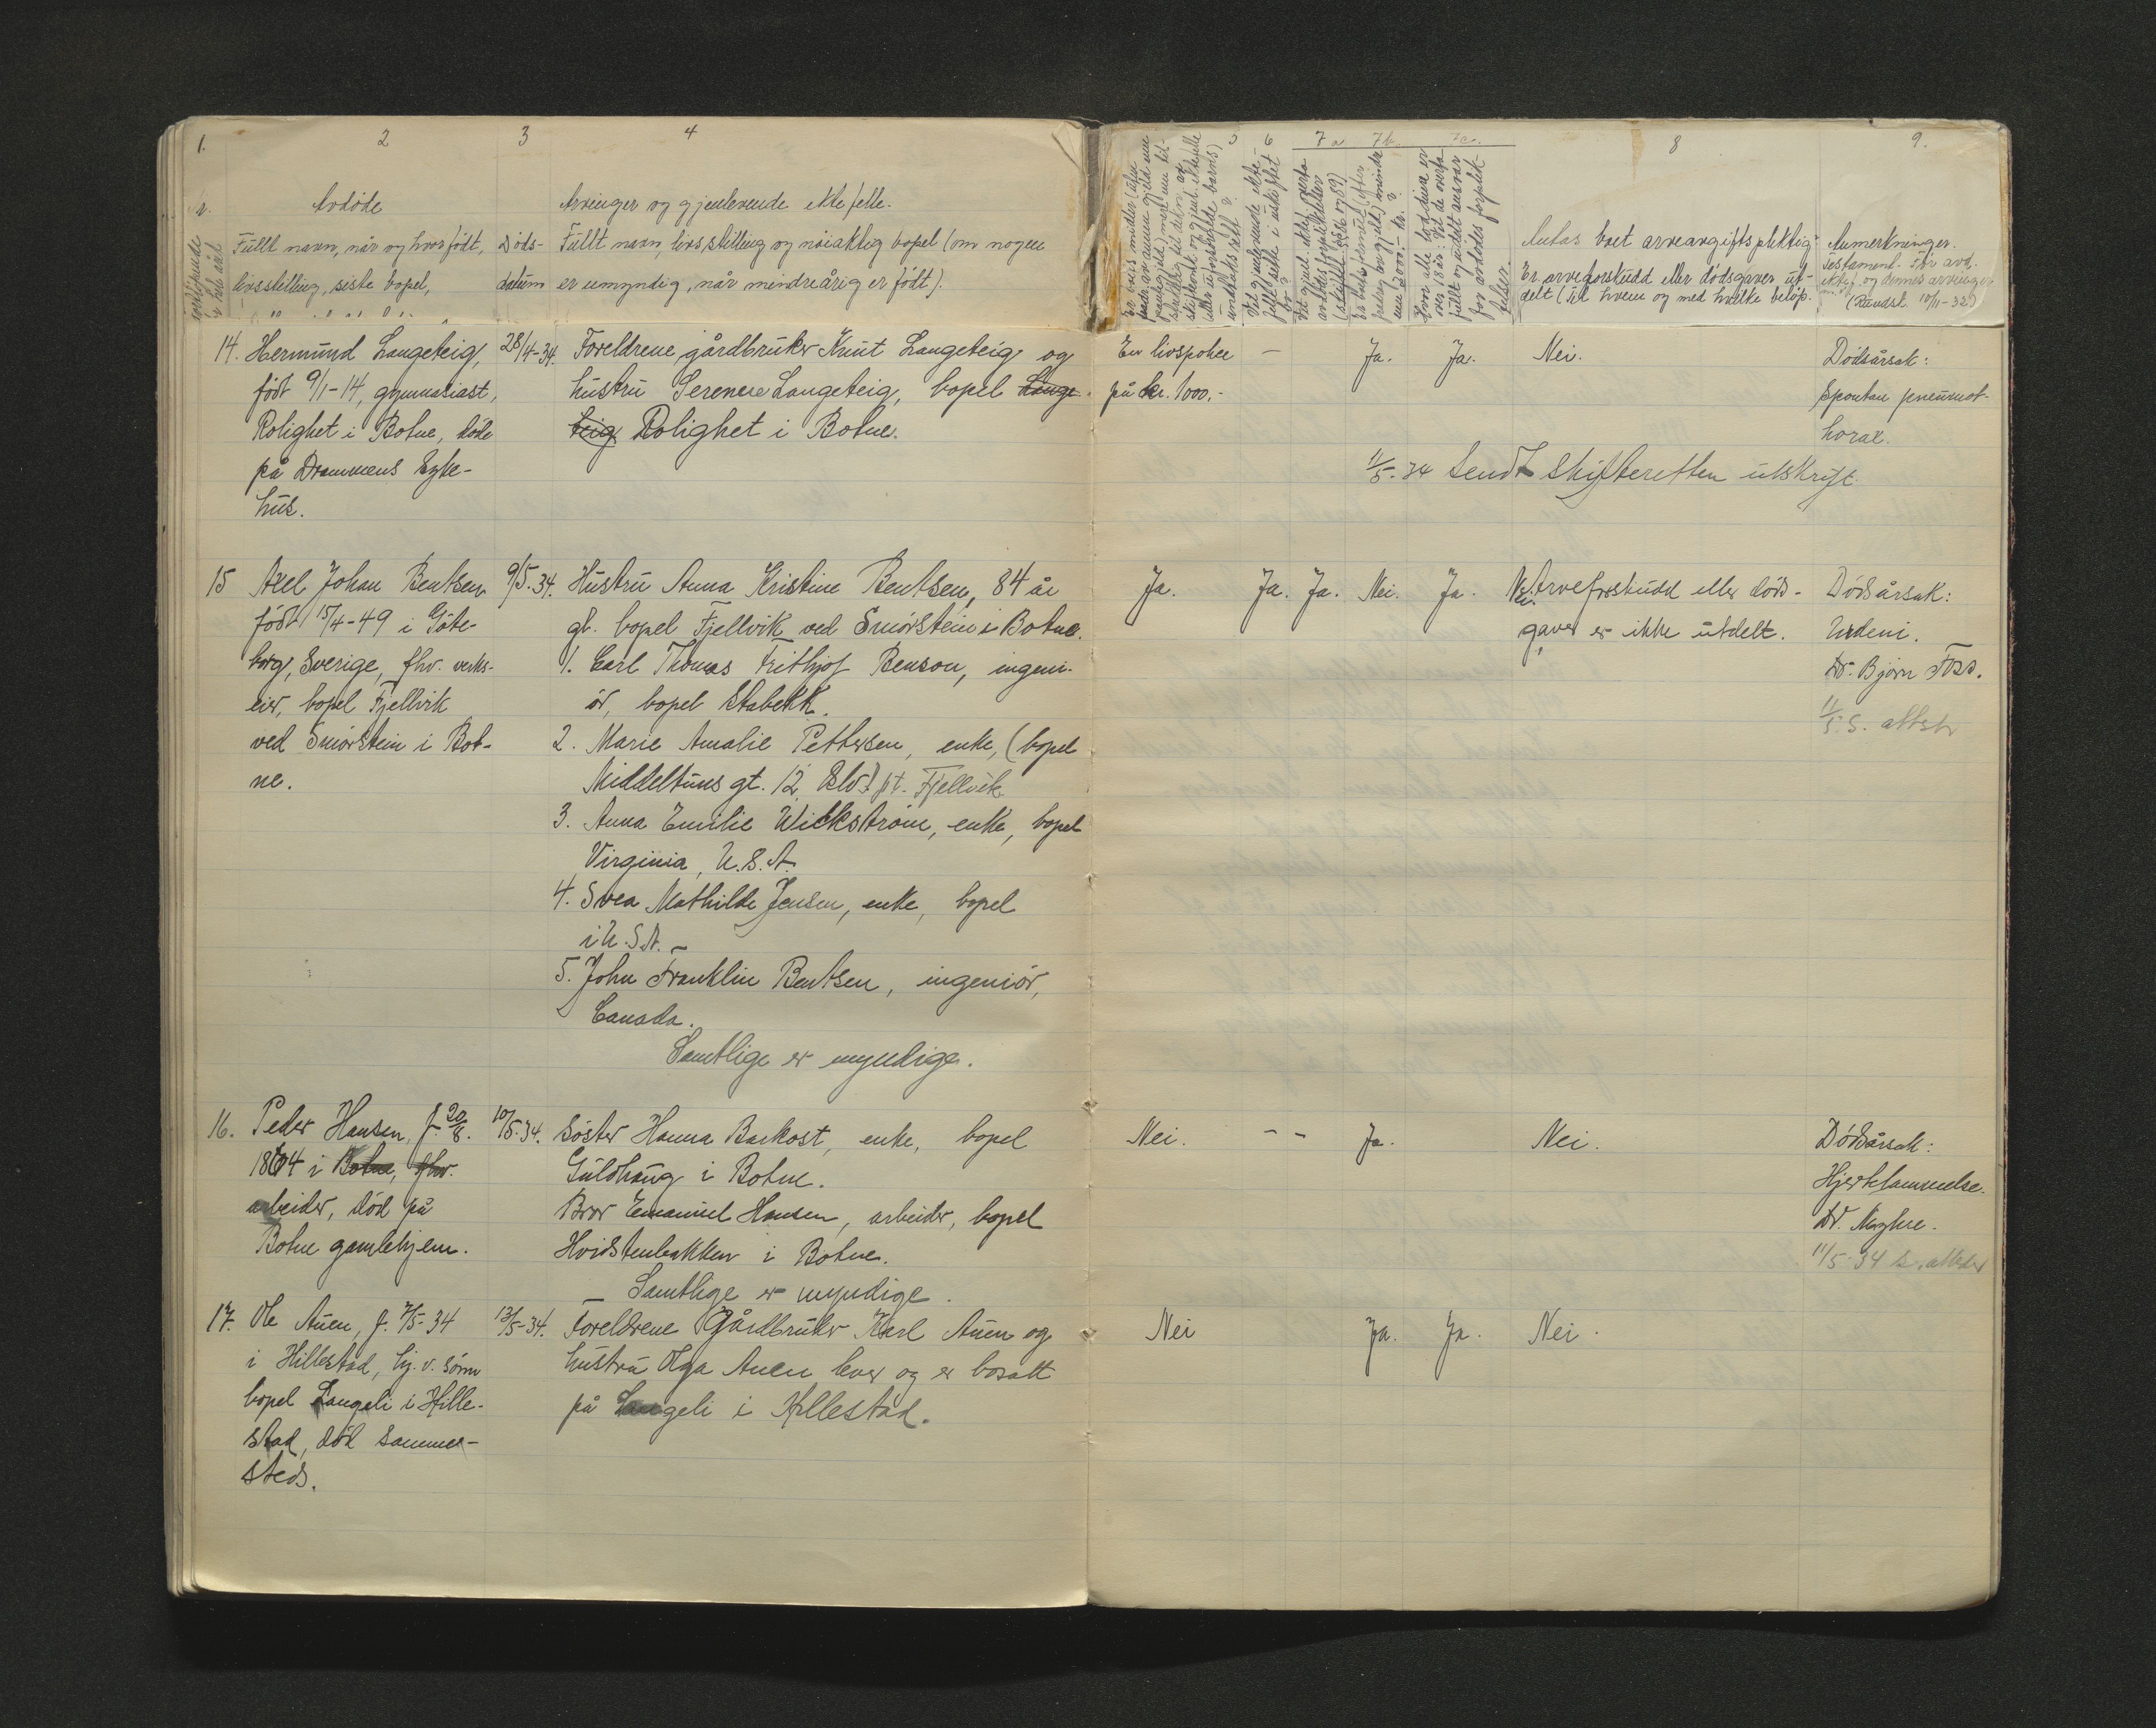 1. 2 3 4
Avdöde
Arvinger og gjenlevende ektefelle.
Fullt navn, når og hvor födt,
livsstilling, siste bopel,
Döds-
datum
Fullt navn, livsstilling og nöiaktig bopel (om nogen
er umyndig, når mindreårig er födt).
6 7a 7b. 7c. 8 9.
Antas boet arveavgiftspliktig?
Er arveforskudd eller dödsgaver ut-
delt (til hvem og med hvilke belöp.
Anmerkninger.
(Rundskr. 10/11-32)
14. Hermund Langeteig,
födt 9/1-14, gymnasiast,
Rolighet i Botne, döde
på Drammens Syke-
hus.
28/4-34.
Foreldrene gårdbruker Knut Langeteig og
hustru Serene Langeteig, bopel Lange-
teig Rolighet i Botne.
En livspolice
på kr. 1000.-
-
Ja.
Ja.
Nei.
Dödsårsak:
Spontan pneumot-
horax.
11/5-34 Sendt Skifteretten utskrift.
15 Axel Johan Bentsen
födt 15/4-49 i Göte-
borg, Sverige, fhv. verks-
eier, bopel Fjellvik
ved Smörstein i Bot-
ne.
9/5.34.
Hustru Anna Kristine Bentsen, 84 år
gl. bopel Fjellvik ved Smörstein i Botne.
1. Carl Thomas Frithjof Benson, ingeni-
ör, bopel Stabekk.
2. Marie Amalie Pettersen, enke, (bopel
Middeltuns gt. 12, Oslo) pt. Fjellvik
3. Anna Emilie Wickström, enke, bopel
Virginia, U.S.A.
4. Svea Mathilde Jensen, enke, bopel
i U.S.A. -
5. John Franklin Bentsen, ingeniör,
Canada.
Samtlige er myndige.
Ja.
Ja.
Ja.
Nei.
Ja.
Nei. Arveforskudd eller döds-
gaver er ikke utdelt.
Dödsårsak:
Urdemi.
Dr. Björn Foss.
11/5. S. attest
16. Peder Hansen, f. 20/8.
1864 i Botne, fhv.
arbeider, död på
Botne gamlehjem.
10/5-34.
Söster Hanna Barkost, enke, bopel
Gulhaug i Botne.
Bror Emanuel Hansen, arbeider, bopel
Hvidstenbakken i Botne.
Samtlige er myndige.
Nei.
- -
Ja.
Nei.
Dödsårsak:
Hjertelammelse.
Dr. Myhre.
11/5-34 S. attest
17. Ole Auen, f. 7/5-34
i Hillestad, hj. v. sönn
bopel Langeli i Hille-
stad, död samme-
steds.
13/5-34.
Foreldrene Gårdbruker Karl Auen og
hustru Olga Auen lever og er bosatt
på Langeli i Hillestad.
Nei
Ja.
Ja.
Nei.